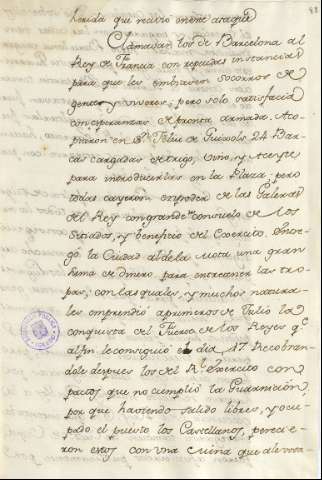 herida que recivio en este ataque
Clamadas los de Barcelona al
Rey de Francia con repetidas instancias
para que les embiasen socorros de
gente, y viveres, pero solo satisfacia
con esperanzas de pronta armada. Aco-
piaron en Sn. Feliu de Guixols 24 Bar-
cas cargadas de trigo, vino, y Aceyte
para introducirlas en la Plaza; pero
todas cayeron en poder de las Galeras
del Rey con grande desconsuelo de los
Sitiados, y beneficio del Exercito. Entre-
gó la Ciudad al de la Mota una gran
suma de dinero para entretener las tro-
pas, con las quales, y muchos natura-
les emprendió a primeros de Julio la
conquista del Fuerte de los Reyes qe.
al fin le consiguió el dia 17 Recobran-
dole despues los del Rl. Exercito con
pactos que no cumplió la Guarnicion,
por que haviendo salido libres, y ocu-
pado el puerto los Castellanos, perecie-
ron estos con una ruina que de